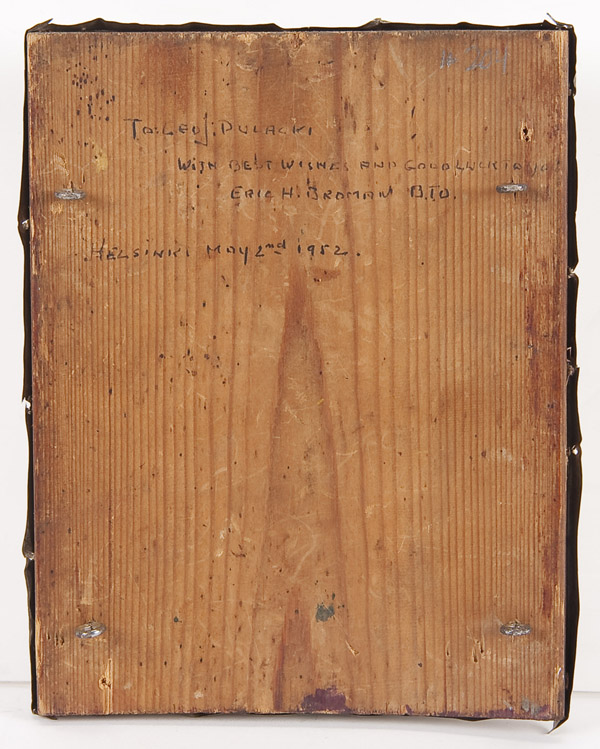 № 204
To: Leo J. Pulacki
With best wishes and good luck to you
Eric H. Broman B.T.O.
Helsinki May 2nd 1952.